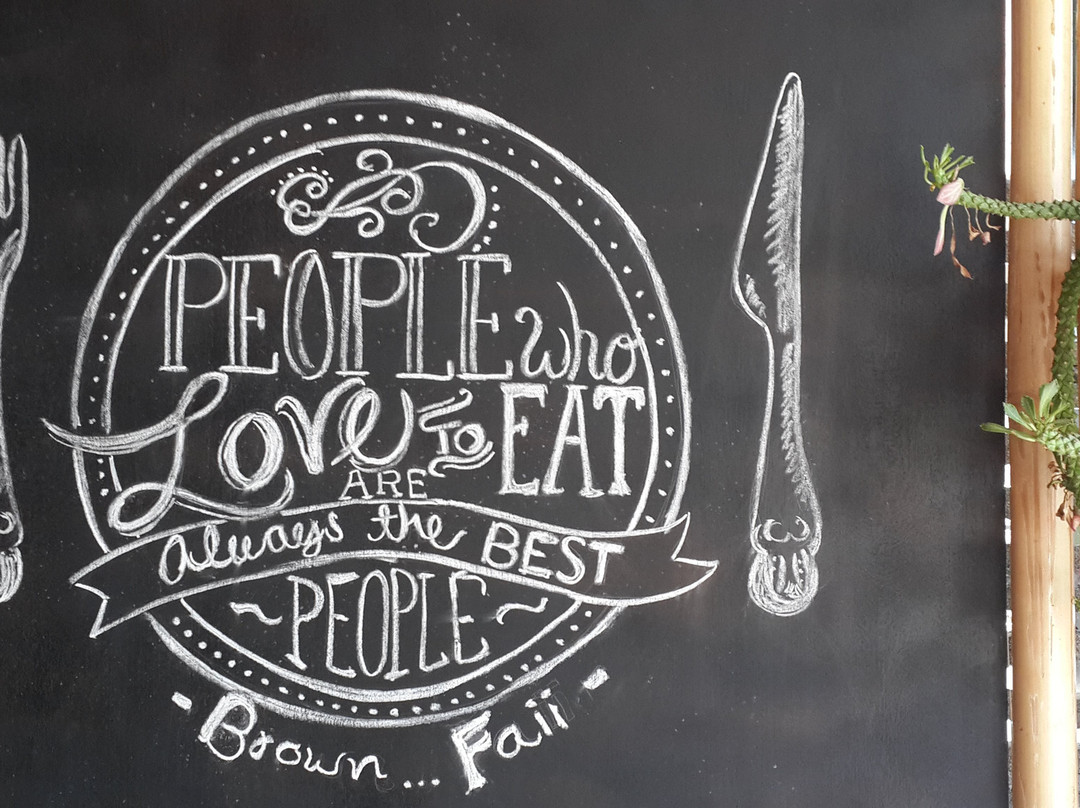 PEOPLE who
Love To EAT
ARE
always the BEST
~PEOPLE~
- Brown ... Faii -